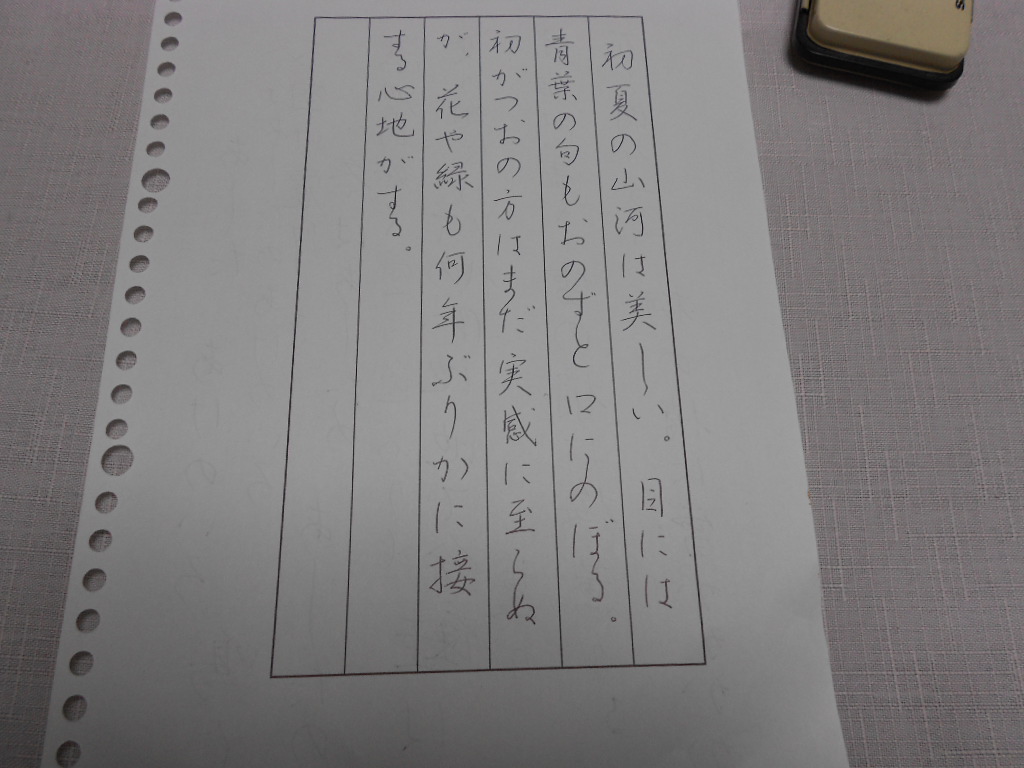 初夏の山河は美しい。目には
青葉の句もおのずと口にのぼる。
初がつおの方はまだ実感に至らぬ
が、花や緑も何年ぶりかに接
する心地がする。